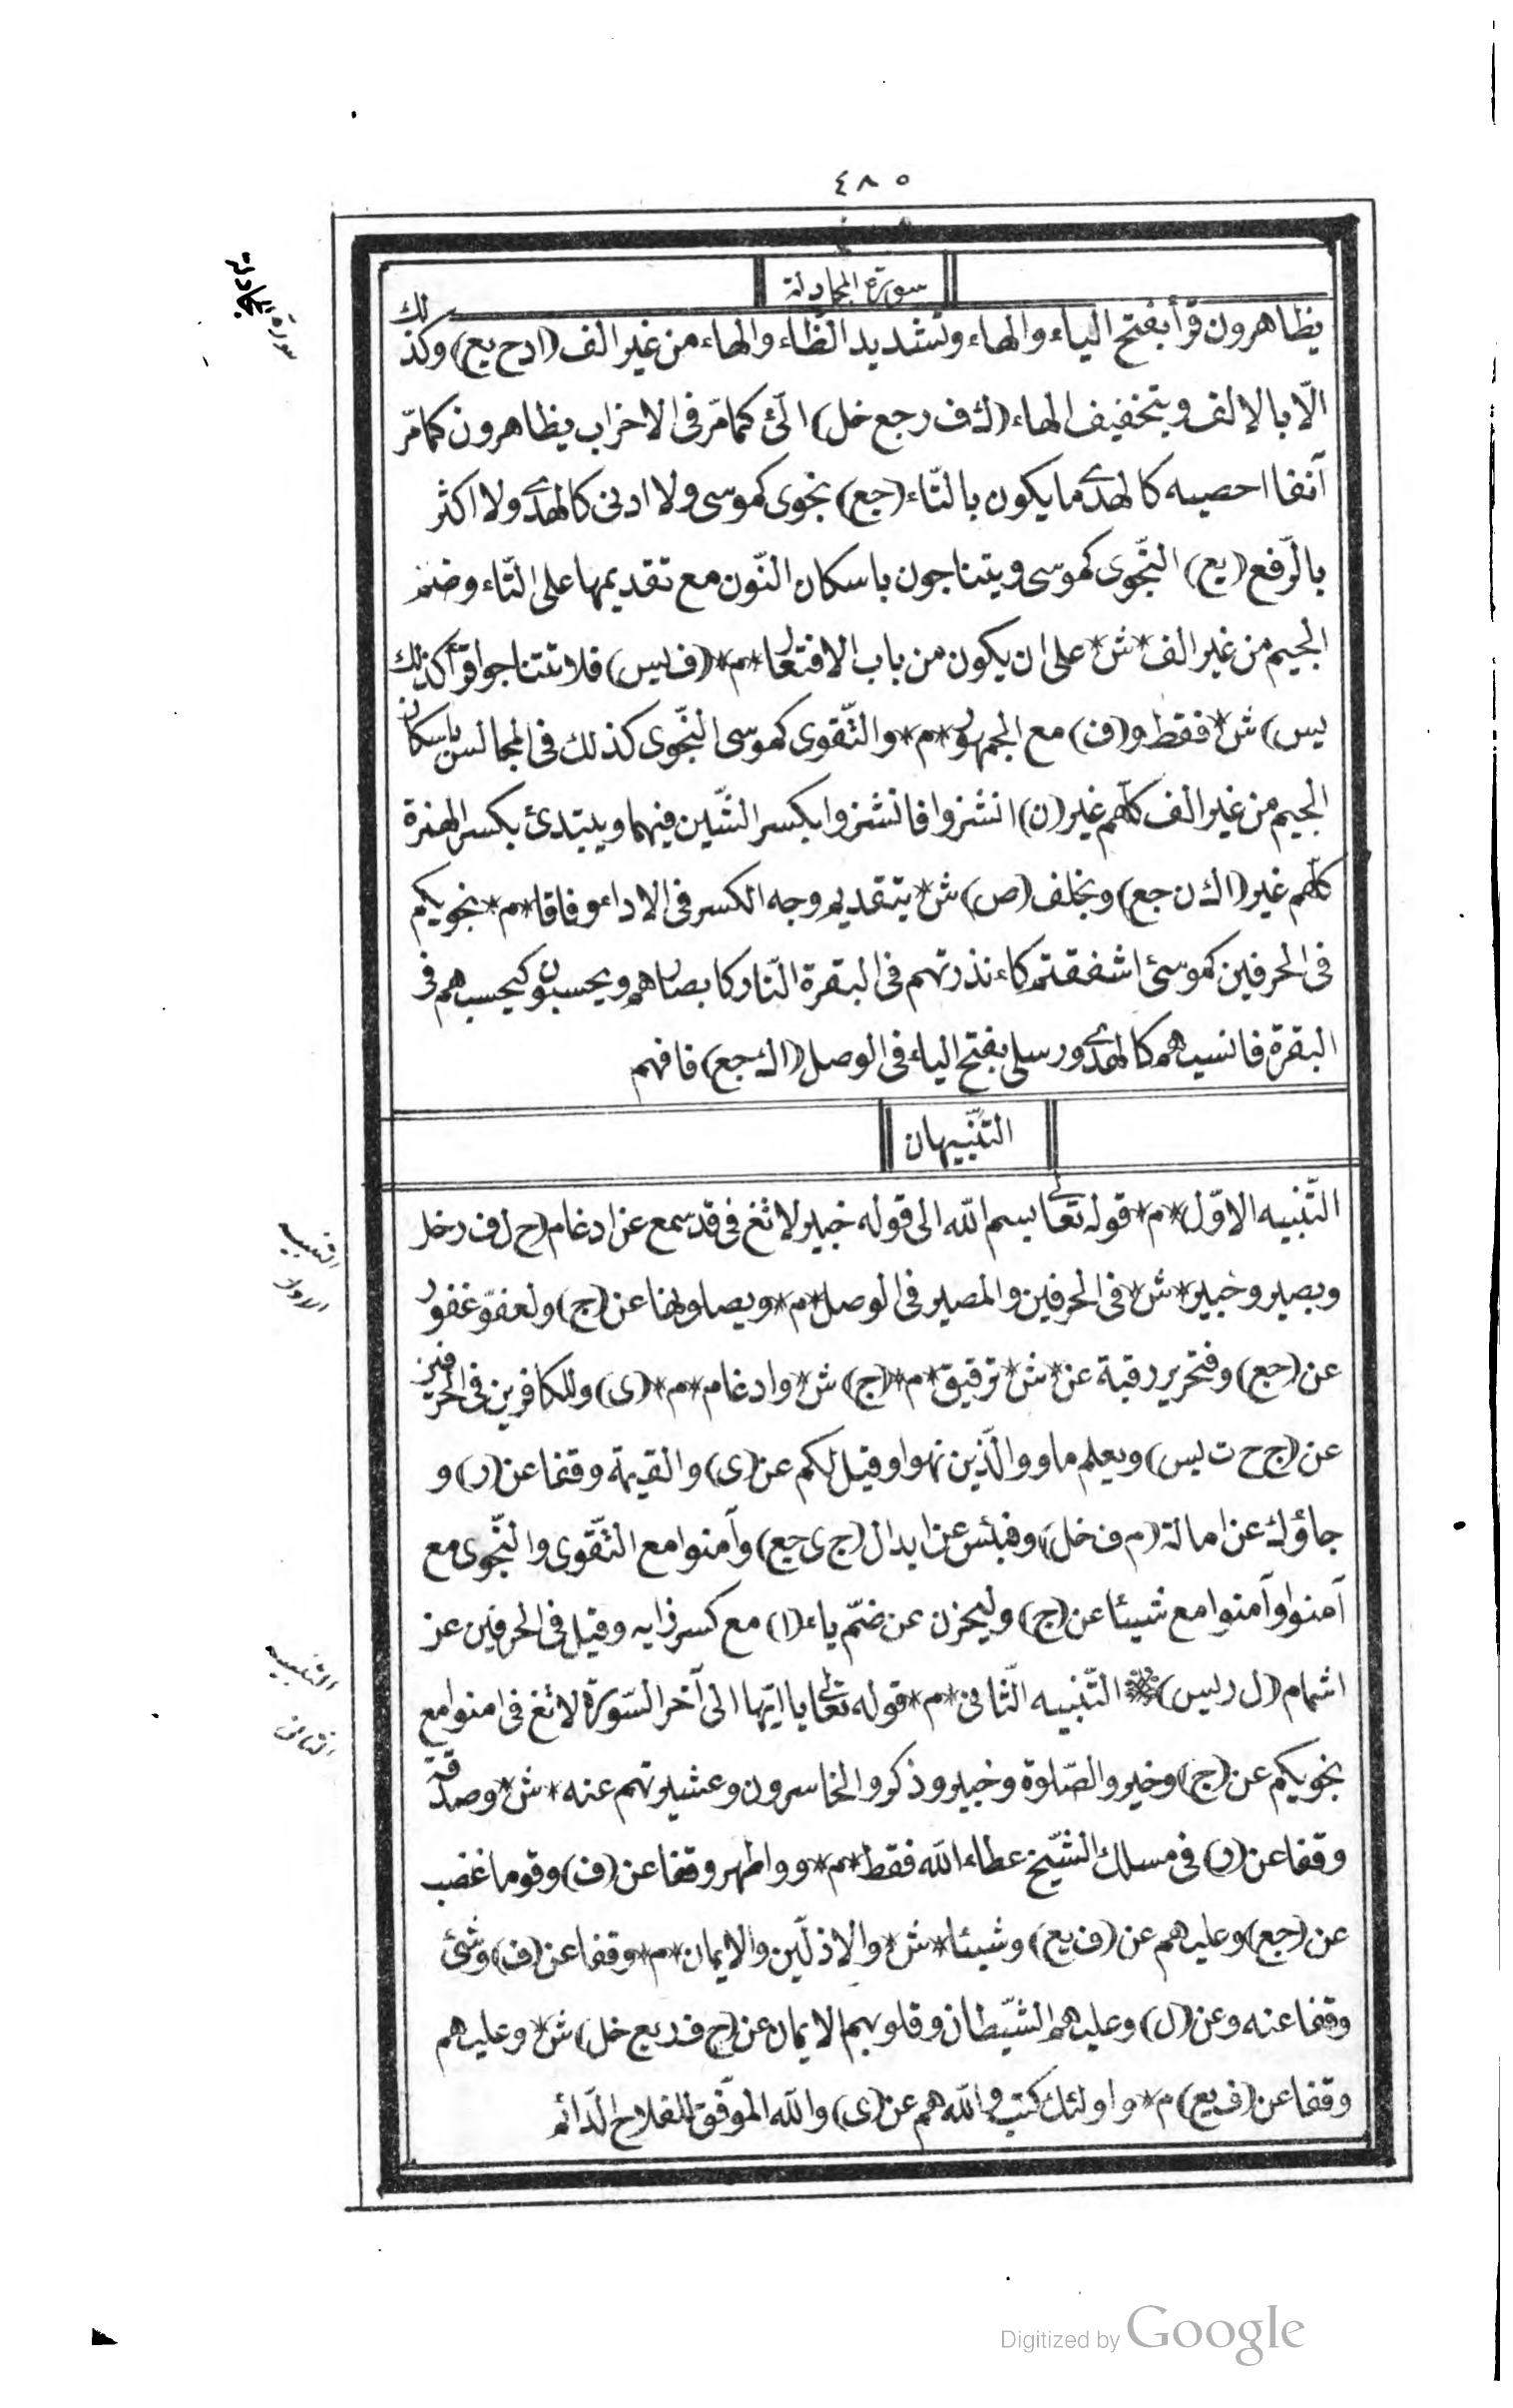 ٤٨٥
سورة المجادلة
سورة المجادلة
يظاهرون قرأ بفتح الياء والهاء وتشديد الظّاء والهاء من غير الف (ا د ح يع) وكذلك
الّا بالالف وبتخفيف الهاء (ك ف ر جع خل) الّئ كما مّر فى الاحزاب يظاهرون كما مّر
آنفا احصيه كالهدى ما يكون بالتّاء (جع) نجوى كموسى ولا ادنى كالهدى ولا اكثر
بالّرفع (يع) النّجوى كموسى ويتناجون باسكان النّون مع تقديمها على التّاء وضم
الجيم من غير الف *ش* على ان يكون من باب الافتعال *م* (ف يس) فلا تتناجوا قرأ كذلك
يس) ش* فقط و(ف) مع الجمهور *م* والتّقوى كموسى النّجوى كذلك فى المجالس باسكان
الجيم من غير الف كلّهم غير (ن) انشزوا فانشزوا بكسر الشّين فيهما ويبتدئ بكسر الهمزة
كلّهم غير (ا ك ن جع) وبخلف (ص) ش* بتقديم وجه الكسر فى الاداء وفاقا *م* نجويكم
فى الحرفين كموسئ اشفقتم كاءنذرتهم فى البقرة النّار كابصارهم ويحسبون كيحسبهم فى
البقرة فانسيهم كالهدى ورسلى بفتح الياء فى الوصل (ا ك جع) فافهم
التّنبيهان
التّنبيه الاوّل *م* قوله تعالى بسم الله الى قوله خبير لا تغ فى قد سمع عن ادغام (ح ل ف ر خل
وبصير وخبير *ش* فى الحرفين والمصير فى الوصل *م* ويصلونها عن (ج) ولعفوّ غفور
عن (جع) وفتحرير رقبة عن *ش* ترقيق *م* (ج) ش* وادغام *م* (ى) وللكافرين فى الحرفين
عن (ج ح ت يس) ويعلم ما و والّذين نهوا وقيل لكم عن (ى) والقيمة وقفا عن (ر) و
جاؤك عن امالة (م ف خل) وفبئس عن ابدال (ج ى جع) وآمنوا مع التّقوى والنّجوى مع
آمنوا وآمنوا مع شيئا عن (ج) وليحزن عن ضمّ ياء (ا) مع كسر زايه وقيل فى الحرفين عن
اشمام (ل ر يس) التّنبيه الثّانى *م* قوله تعالى يا ايّها الى آخر السّورة لا تغ فى امنوا مع
نجويكم عن (ج) وخير والصّلوة وخبير وذكر والخاسرون وعشيرتهم عنه *ش* وصدقة
وقفا عن (ر) فى مسلك الشّيخ عطاء الله فقط *م* و واطهر وقفا عن (ف) وقوما غضب
عن (جع) وعليهم عن (ف يع) وشيئا *ش* والاذلّين والايمان *م* وقفا عن (ف) وشئ
وقفا عنه وعن (ل) وعليهم الشّيطان وقلوبهم الايمان عن (ح ف ر يع خل) ش* وعليهم
وقفا عن (ف يع) م* واولئك كتب والله هم عن (ى) والله الموّفق للفلاح الدّائم
التنبيه
الاول
التنبيه
الثانى
Digitized by Google